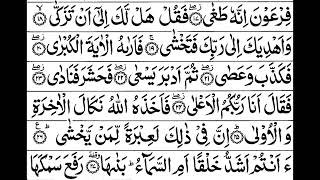 فِرۡعَوۡنَ اِنَّهٗ طَغٰى ﴿۱۷﴾ فَقُلۡ هَلۡ لَّكَ اِلٰٓى اَنۡ تَزَكّٰى ﴿۱۸﴾
وَاَهۡدِيَكَ اِلٰى رَبِّكَ فَتَخۡشٰى ﴿۱۹﴾ فَاَرٰٮهُ الۡاٰيَةَ الۡكُبۡرٰى ﴿۲۰﴾
فَكَذَّبَ وَعَصٰى ﴿۲۱﴾ ثُمَّ اَدۡبَرَ يَسۡعٰى ﴿۲۲﴾ فَحَشَرَ فَنَادٰى ﴿۲۳﴾
فَقَالَ اَنَا رَبُّكُمُ الۡاَعۡلٰى ﴿۲۴﴾ فَاَخَذَهُ اللّٰهُ نَكَالَ الۡاٰخِرَةِ
وَالۡاُوۡلٰى ﴿۲۵﴾ اِنَّ فِىۡ ذٰلِكَ لَعِبۡرَةً لِّمَنۡ يَّخۡشٰى ﴿۲۶﴾
ءَاَنۡتُمۡ اَشَدُّ خَلۡقًا اَمِ السَّمَآءُ ؕ بَنٰٮهَا ﴿۲۷﴾ رَفَعَ سَمۡكَهَا